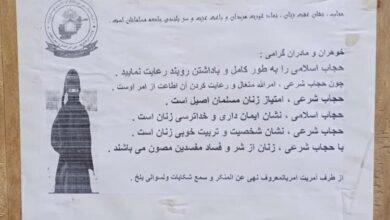 حجاب، نشان عفت زنان، نماد غیرت مردان و باعث عزت و سر بلندی جامعه مسلمانان است.
خوهران و مادران گرامی :
حجاب اسلامی را به طور کامل و باداشتن روبند رعایت نمایید .
چون حجاب شرعی ، امرالله متعال و رعایت کردن آن اطاعت از امر اوست .
حجاب شرعی ، امتیاز زنان مسلمان اصیل است .
حجاب اسلامی ، نشان ایمان داری و خداترسی زنان است .
حجاب شرعی ، نشان شخصیت و تربیت خوبی زنان است
با حجاب شرعی ، زنان از شر و فساد مفسدین مصون می باشند .
از طرف آمریت امربالمعروف نهی عن المنکر و سمع شکایات ولسوالی بلخ .